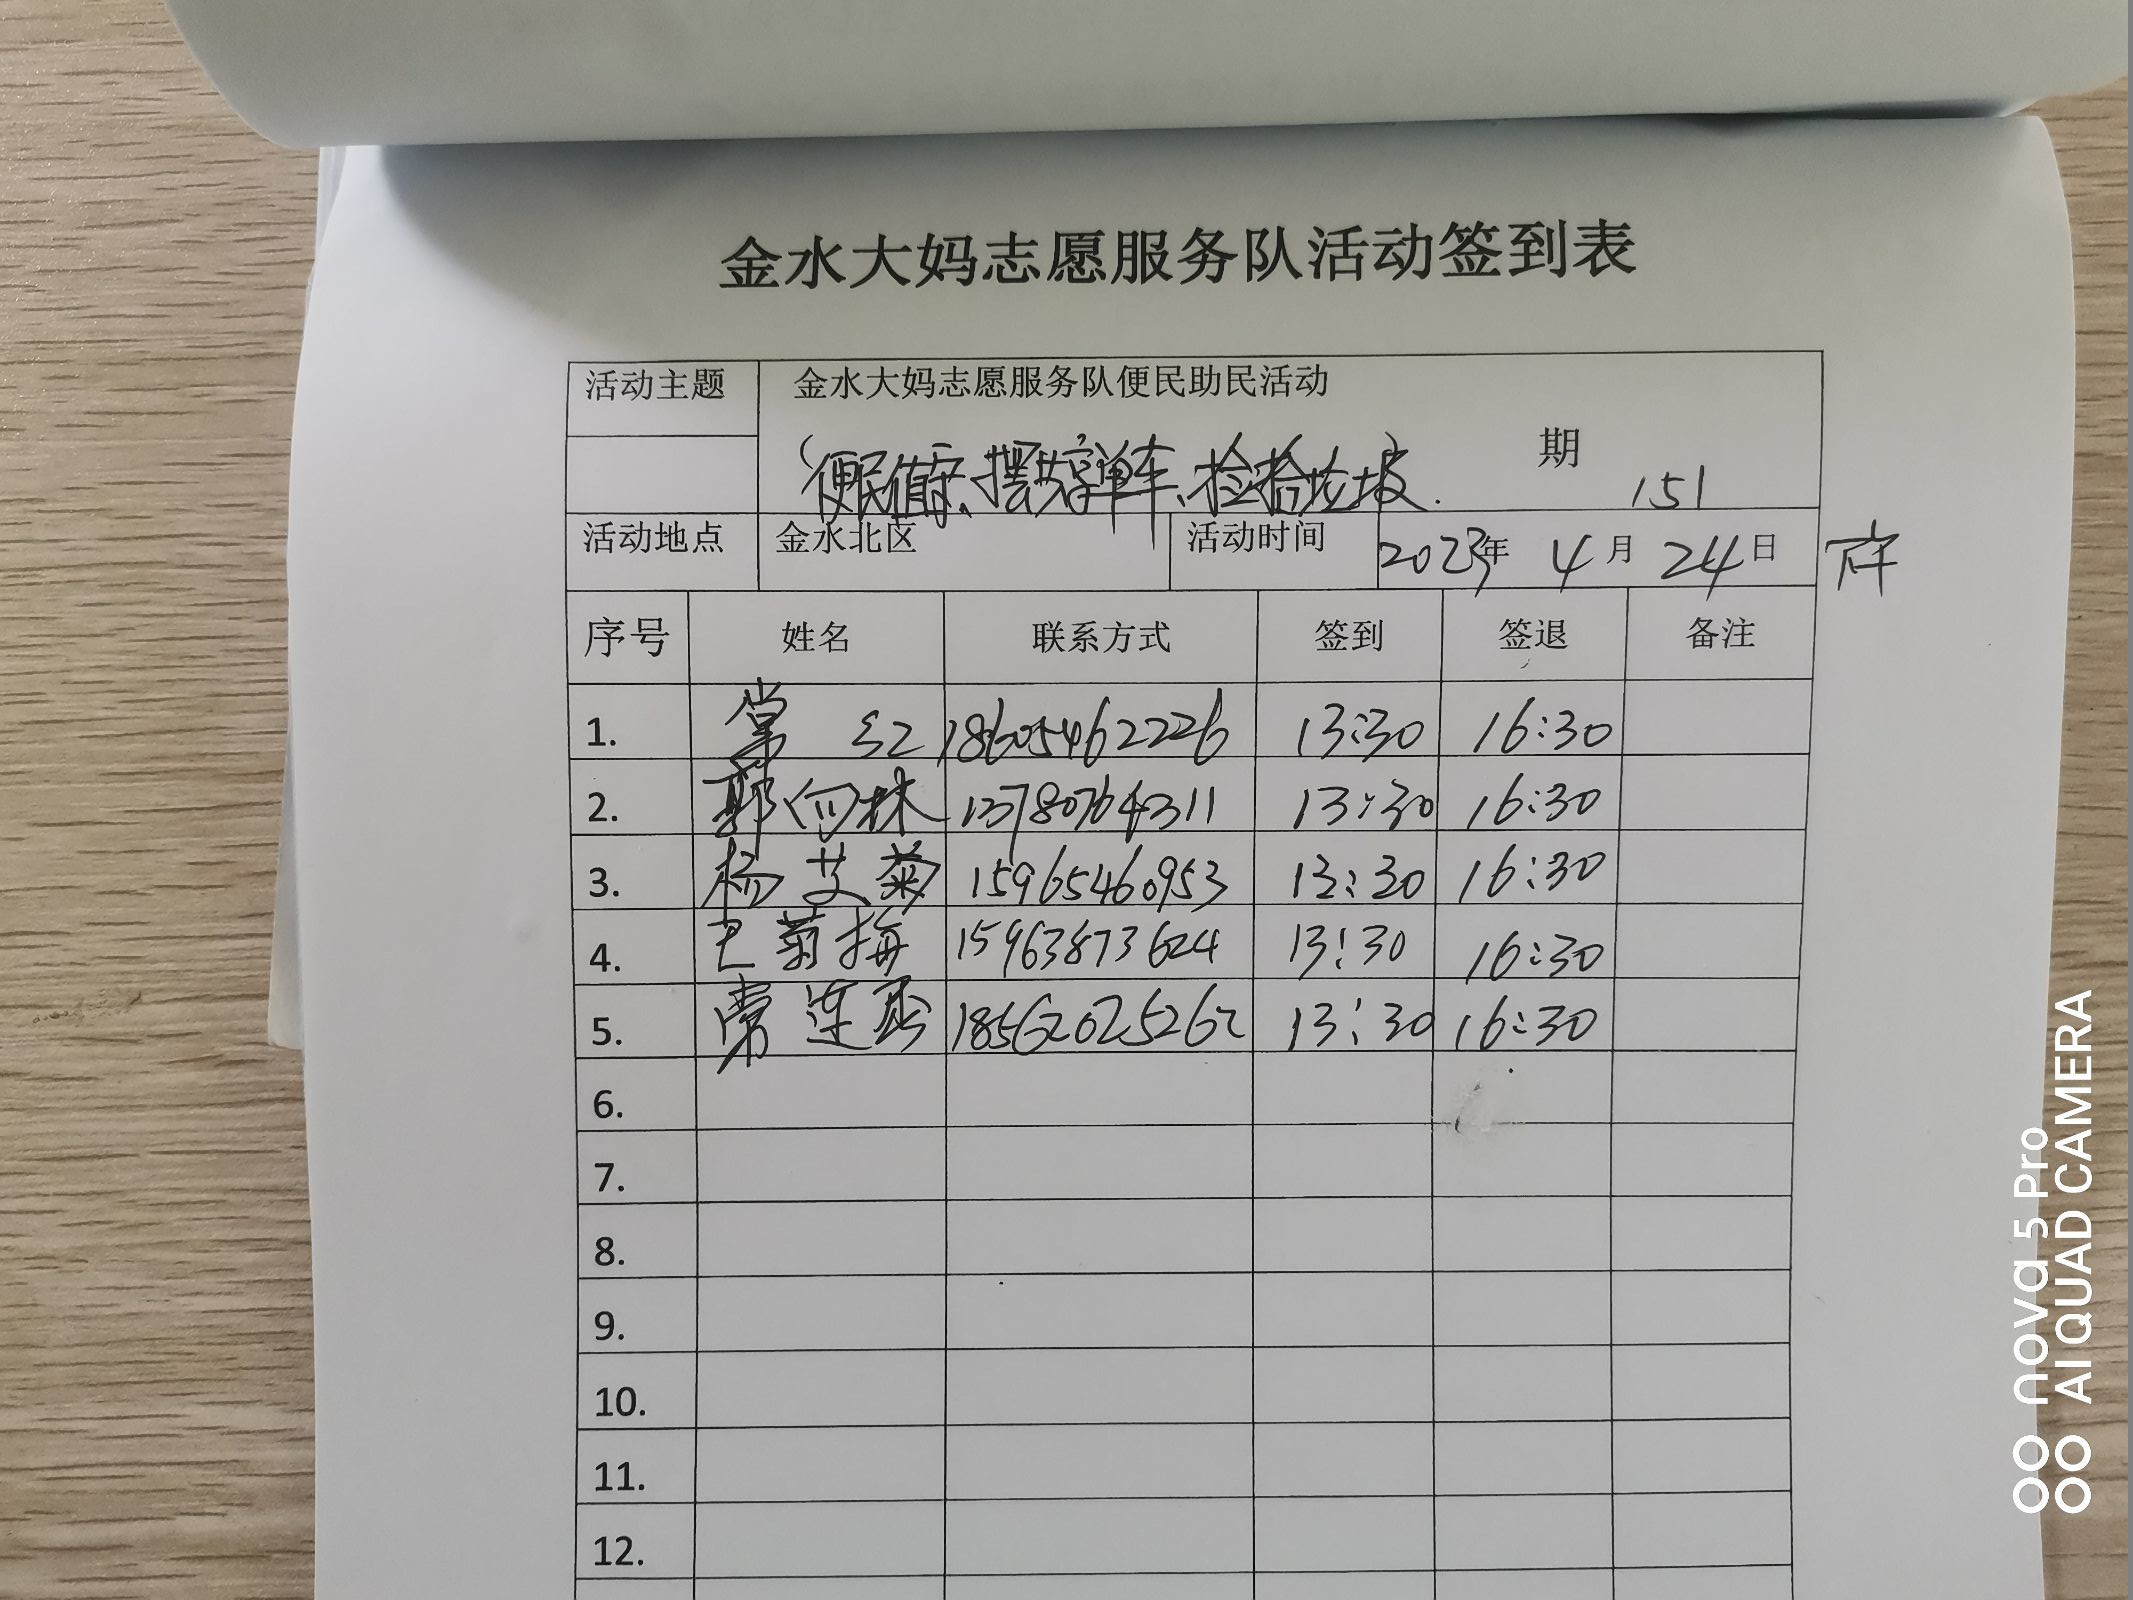 金水大妈志愿服务队活动签到表
活动主题 金水大妈志愿服务队便民助民活动
期
(便民值守、摆共享单车、捡拾垃圾) 151
活动地点 金水北区 活动时间 2023年 4月 24日
序号 姓名 联系方式 签到 签退 备注
1. 常红 18605462226 13:30 16:30
2. 郭向林 13780764311 13:30 16:30
3. 杨艾菊 15965460953 13:30 16:30
4. 巴菊梅 15963873624 13:30 16:30
5. 常连 18562025262 13:30 16:30
6.
7.
8.
9.
10.
11.
12.
nova 5 Pro
AI QUAD CAMERA